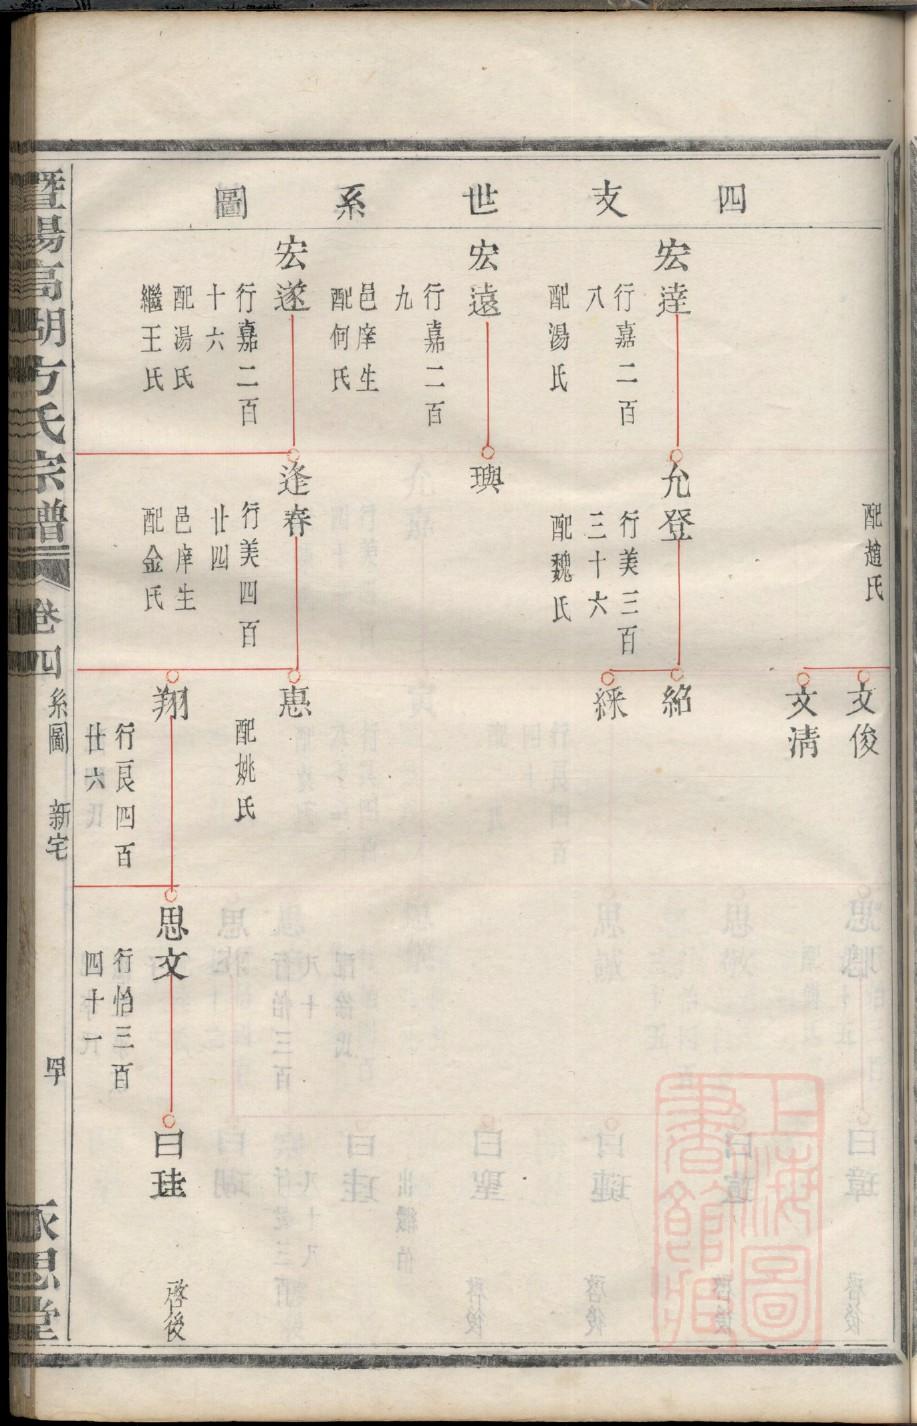 四支世系圖
配趙氏
文俊
文清
宏達
行嘉二百
八
配湯氏
允登
行美三百
三十六
配魏氏
紹
綵
宏遠
行嘉二百
九
邑庠生
配何氏
璵
宏遂
行嘉二百
十六
配湯氏
繼王氏
逢春
行美四百
廿四
邑庠生
配金氏
惠
配姚氏
翔
行艮四百
廿六
思文
行怡三百
四十一
曰珪
啓後
暨陽高湖方氏宗譜
卷四
系圖
新宅
永思堂
上海圖
書館藏